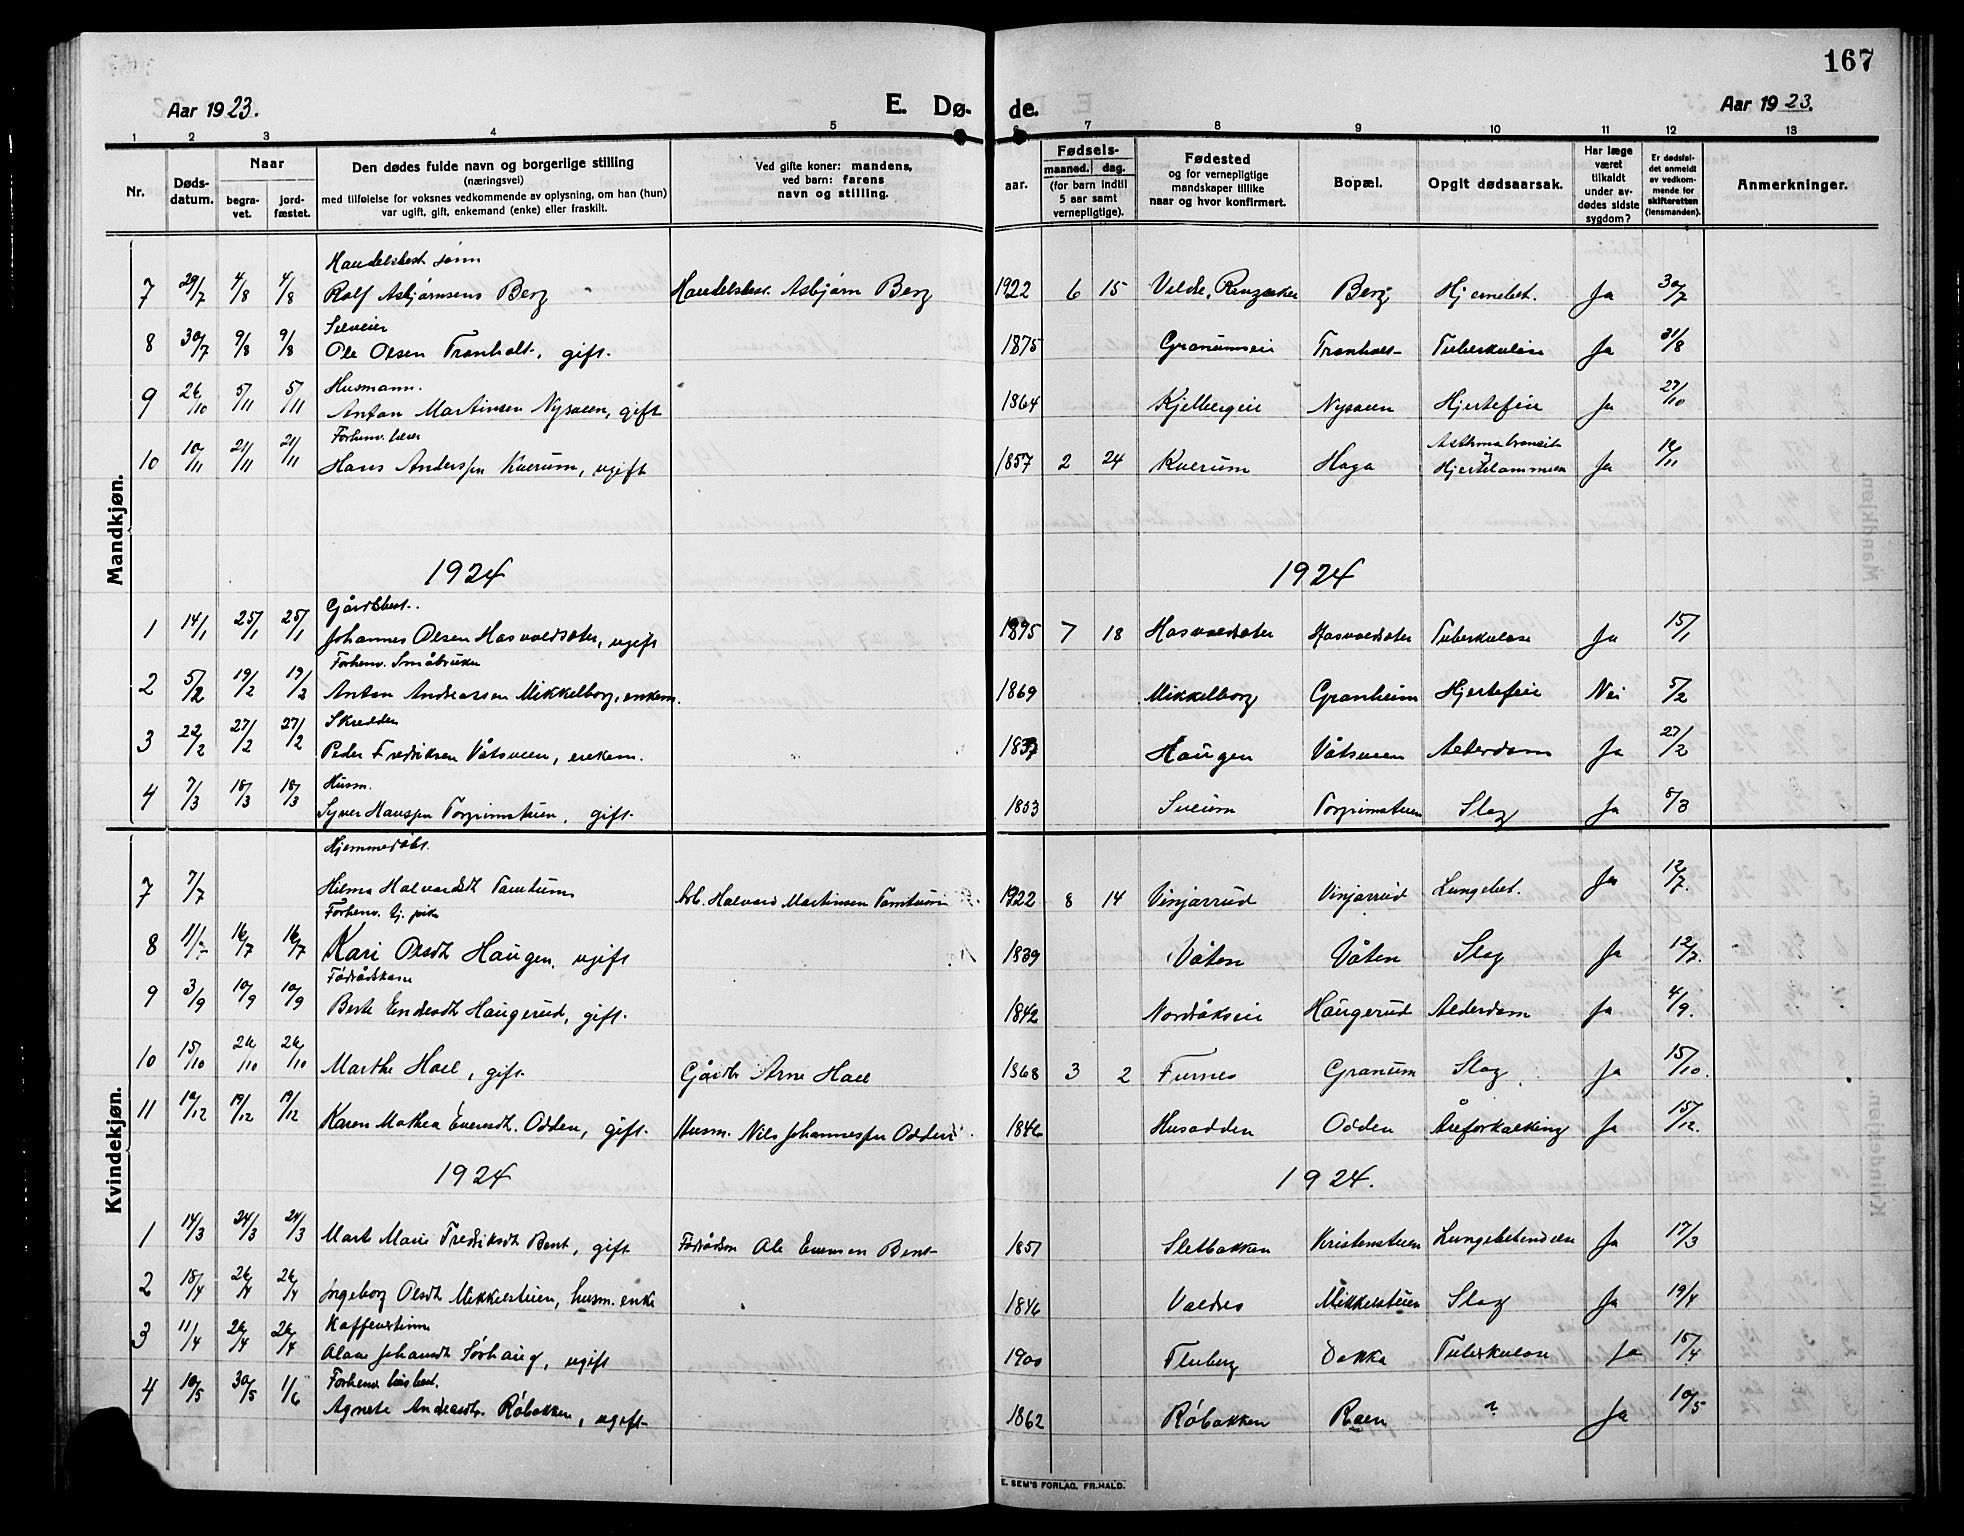 167
Aar 1923.
E. Dø- de.
Aar 1923.
1 2 3 4 5 6 7 8 9 10 11 12 13
Nr.
Døds-
datum.
Naar
begra-
vet.
jord-
fæstet.
Den dødes fulde navn og borgerlige stilling
(næringsvei)
med tilføielse for voksnes vedkommende av oplysning, om han (hun)
var ugift, gift, enkemand (enke) eller fraskilt.
Ved gifte koner: mandens,
ved barn: farens
navn og stilling.
aar.
Fødsels-
maaned. dag.
(for barn indtil
5 aar samt
vernepligtige).
Fødested
og for vernepligtige
mandskaper tillike
naar og hvor konfirmert.
Bopæl.
Opgit dødsaarsak.
Har læge
været
tilkaldt
under av-
dødes sidste
sygdom?
Er dødsfal-
det anmeldt
av vedkom-
mende for
skifteretten
(lensmanden).
Anmerkninger.
Mandkjøn.
Handelsbest. sønn
7 29/7 4/8 4/8 Rolf Asbjørnsens Berg Handelsbest. Asbjørn Berg 1922 6 15 Velde, Ringsaker Berg Hjernebet. Ja 30/7
Selveier
8 30/7 9/8 9/8 Ole Olsen Tranholt, gift. 1875 Granumseie Tranholt Tuberkulose Ja 31/8
Husmann.
9 26/10 5/11 5/11 Anton Martinsen Nysveen, gift 1864 Kjelbergeie Nysveen Hjertefeil Ja 27/10
Forhenv. lærer
10 10/11 21/11 21/11 Hans Anderssen Kverum, ugift 1857 2 24 Kverum Haga Hjertelammelse Ja 12/11
1924 1924
Gårdbest.
1 14/1 25/1 25/1 Johannes Olsen Hasvoldsæter, ugift 1895 7 18 Hasvoldsæter Hasvoldsæter Tuberkulose Ja 15/1
Forhenv. Småbruker
2 5/2 19/2 19/2 Anton Andreassen Mikkelborg, enkem. 1869 Mikkelborg Granheim Hjertefeil Nei 5/2
Skredder
3 22/2 27/2 27/2 Peder Fredriksen Våtsveen, enkem. 1837 Haugen Våtsveen Alderdom Ja 27/2
Husm.
4 7/3 18/3 18/3 Syver Hanssen Torgrimstuen, gift. 1853 Sveum Torgrimstuen Slag Ja 8/3
Kvindekjøn.
Hjemmedøbt.
7 7/7 Hilma Halvardsdt Tomtum Arb. Halvard Martinsen Tomtum 1922 8 14 Vinjarrud Vinjarrud Lungebet. Ja 12/7.
Forhenv. tj. pike
8 11/7 16/7 16/7 Kari Olsdt Haugen, ugift 1839 Våten Våten Slag Ja 12/7.
Føderådskone
9 3/9 10/9 10/9 Berte Endresdt Haugerud, gift. 1842 Nordåkseie Haugerud Alderdom Ja 4/9.
10 15/10 26/10 26/10 Marthe Hoel, gift. Gårdbr Arne Hoel 1868 3 2 Furnes Granum Slag Ja 15/10.
11 10/12 19/12 19/12 Karen Mathea Evensdt. Odden, gift. Husm. Nils Johannessen Odden 1846 Husodden Odden Åreforkalkning Ja 15/12.
1924 1924.
1 14/3 24/3 24/3 Marte Marie Fredriksdt Bent, gift Føderådsm Ole Evensen Bent 1851 Sletbakken Kristenstuen Lungebetendelse Ja 17/3
2 18/4 26/4 26/4 Ingeborg Olsdt Mikkelstuen, husm. enke 1846 Valdres Mikkelstuen Slag Ja 19/4
Kaffevertinne
3 11/4 26/4 26/4 Johansdt Sørhaug, ugift 1900 Fluberg Dokka Tuberkulose Ja 15/4
4 10/5 30/5 1/6 Agnete Andersdt. Röbakken, ugift 1862 Röbakken Roen ? Ja 10/5
E. SEM'S FORLAG, FR.HALD.